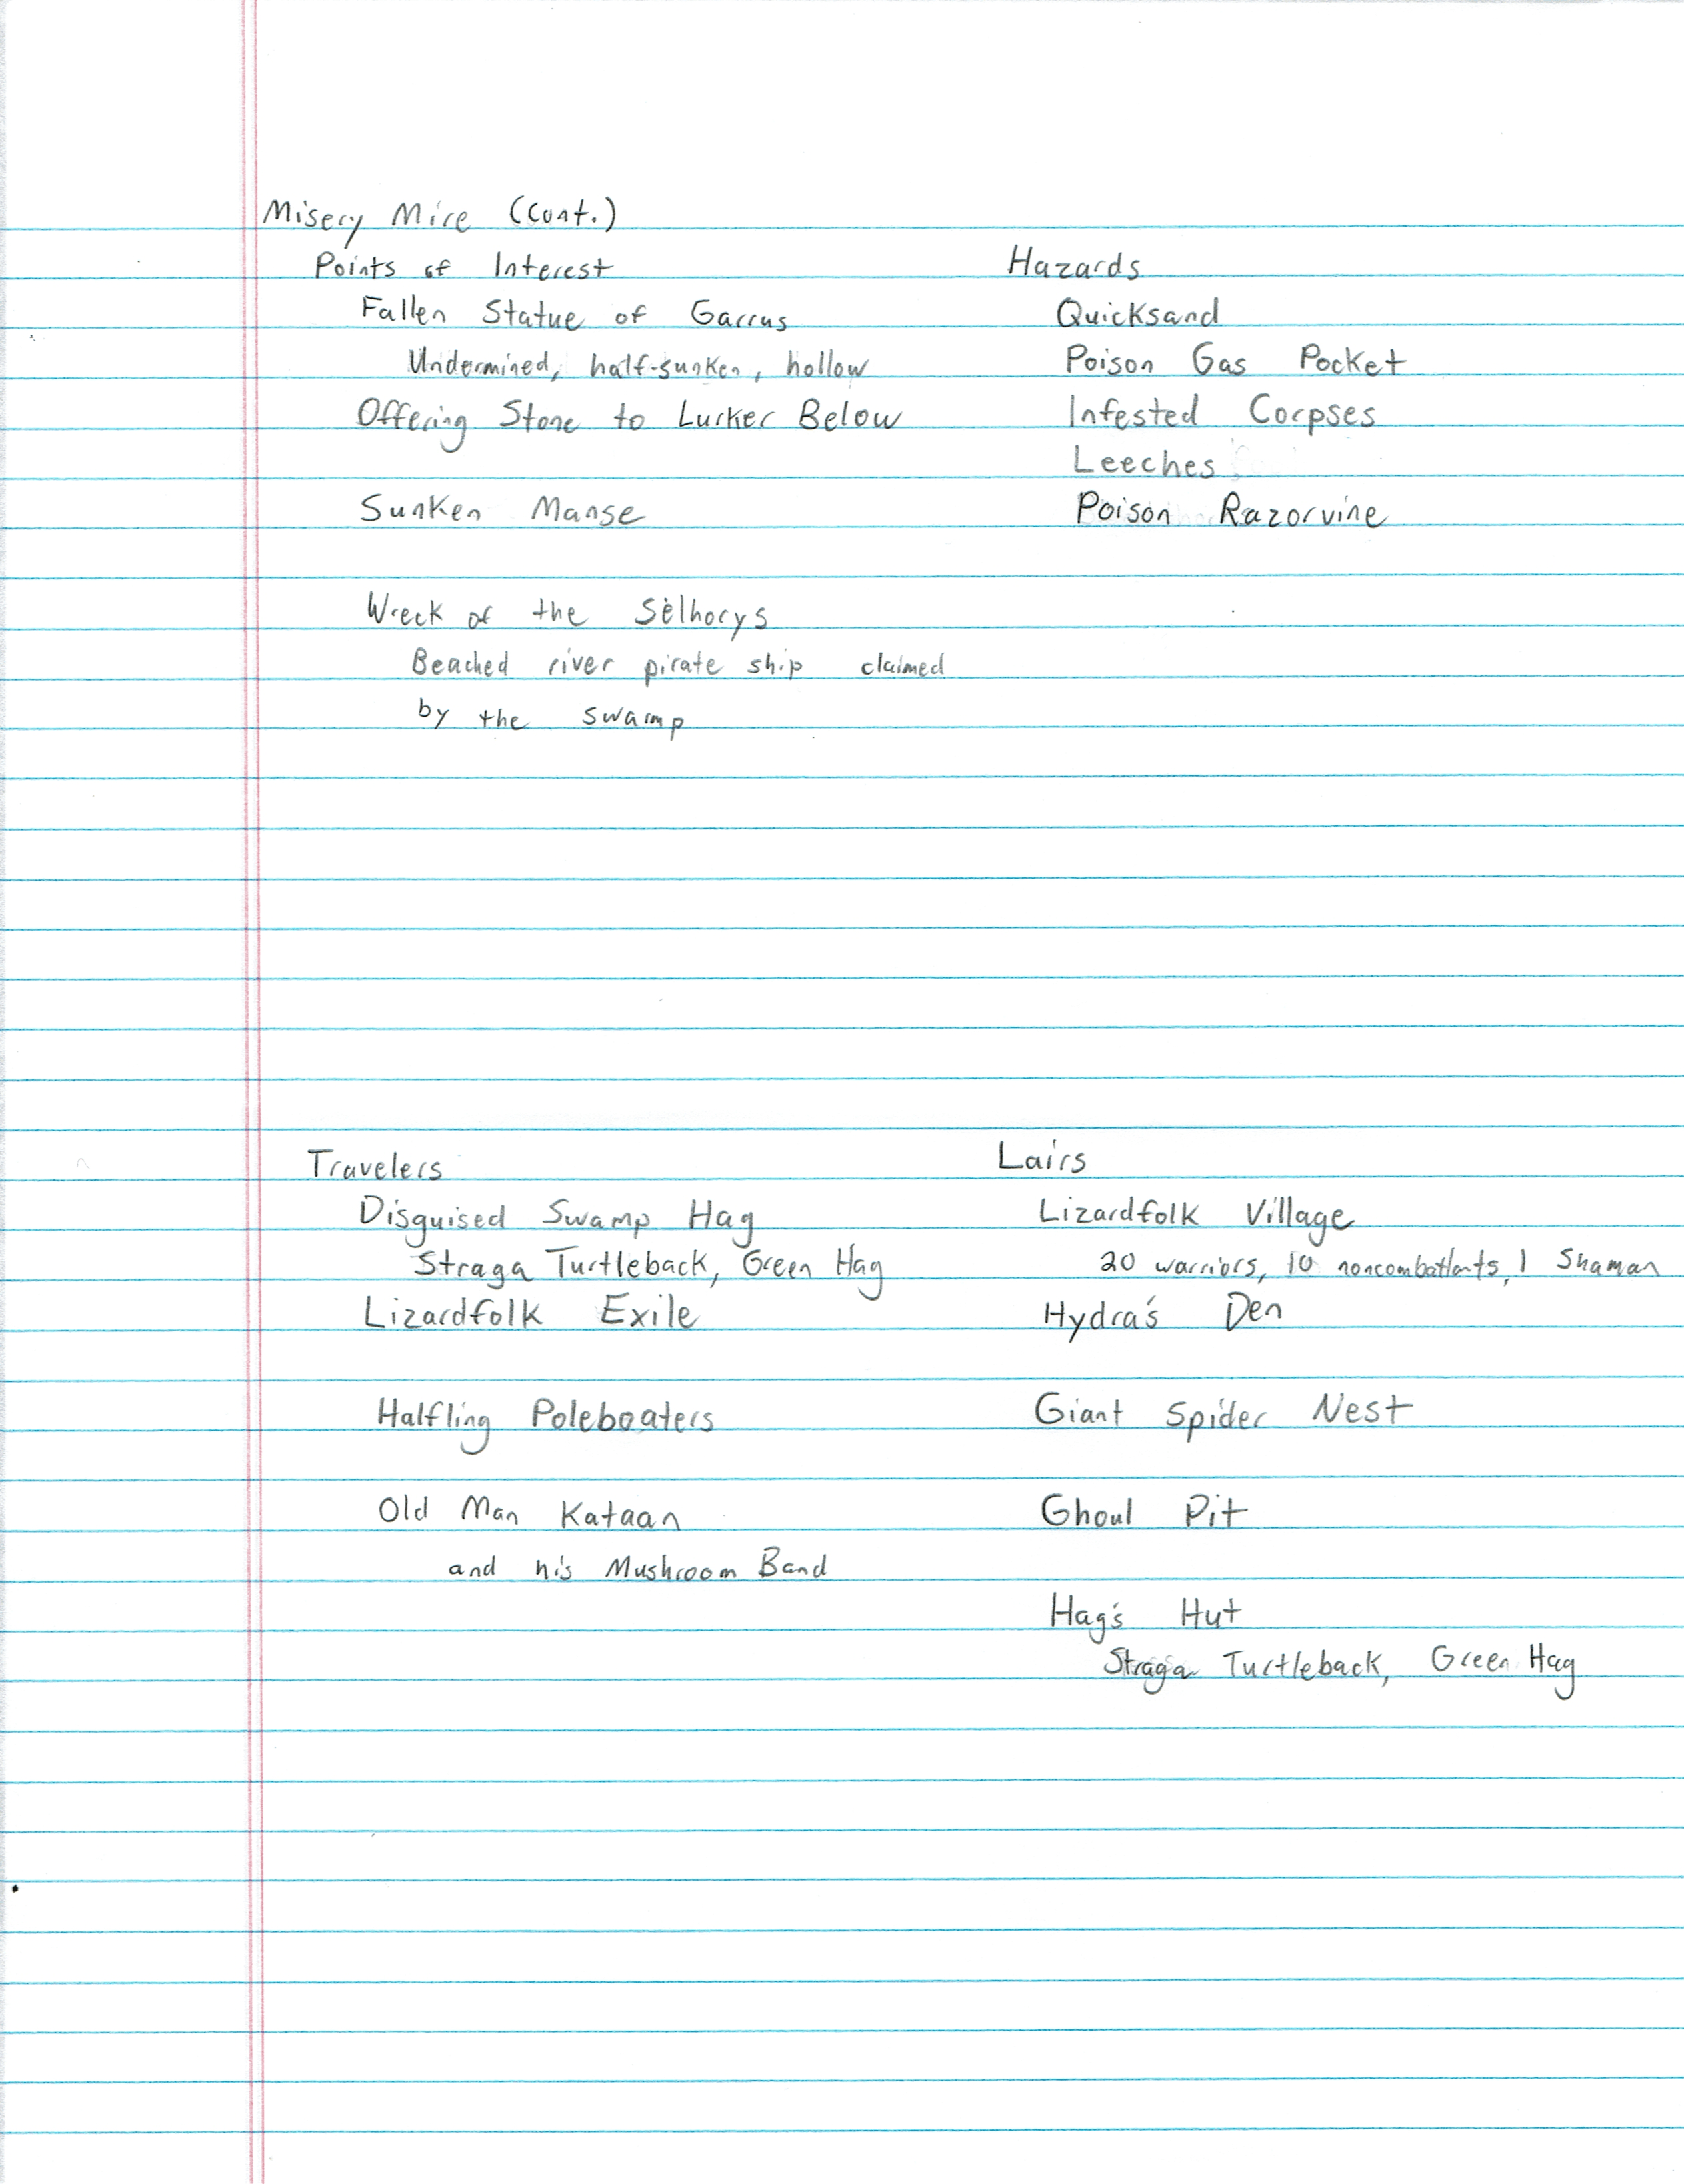 Misery Mire (cont.)
Points of Interest
Fallen Statue of Garrus
Undermined, half-sunken, hollow
Offering Stone to Lurker Below
Sunken Manse
Wreck of the Selhorys
Beached river pirate ship claimed
by the swamp
Hazards
Quicksand
Poison Gas Pocket
Infested Corpses
Leeches
Poison Razorvine
Travelers
Disguised Swamp Hag
Straga Turtleback, Green Hag
Lizardfolk Exile
Halfling Poleboaters
Old Man Kataan
and his Mushroom Band
Lairs
Lizardfolk Village
20 warriors, 10 noncombatants, 1 Shaman
Hydra's Den
Giant Spider Nest
Ghoul Pit
Hag's Hut
Straga Turtleback, Green Hag